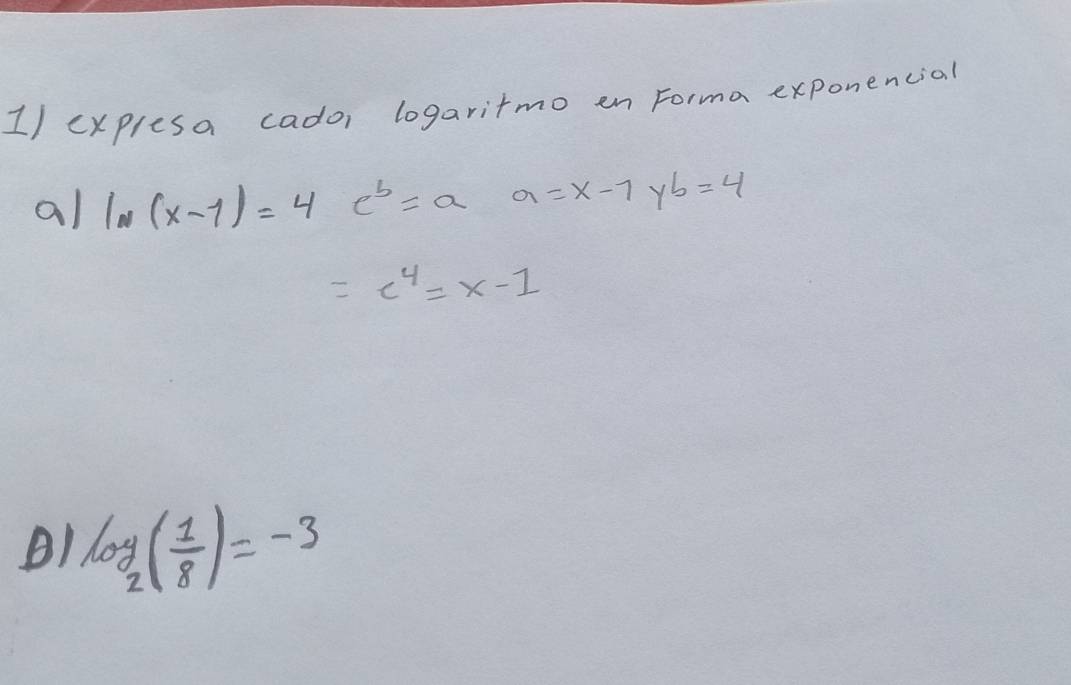 1) expresa cada, logaritmo en Forma exponencial
a) ln (x-1) = 4 e^b = a a = x-1 y b = 4
= e^4 = x - 1
B) log_2 (1/8) = -3